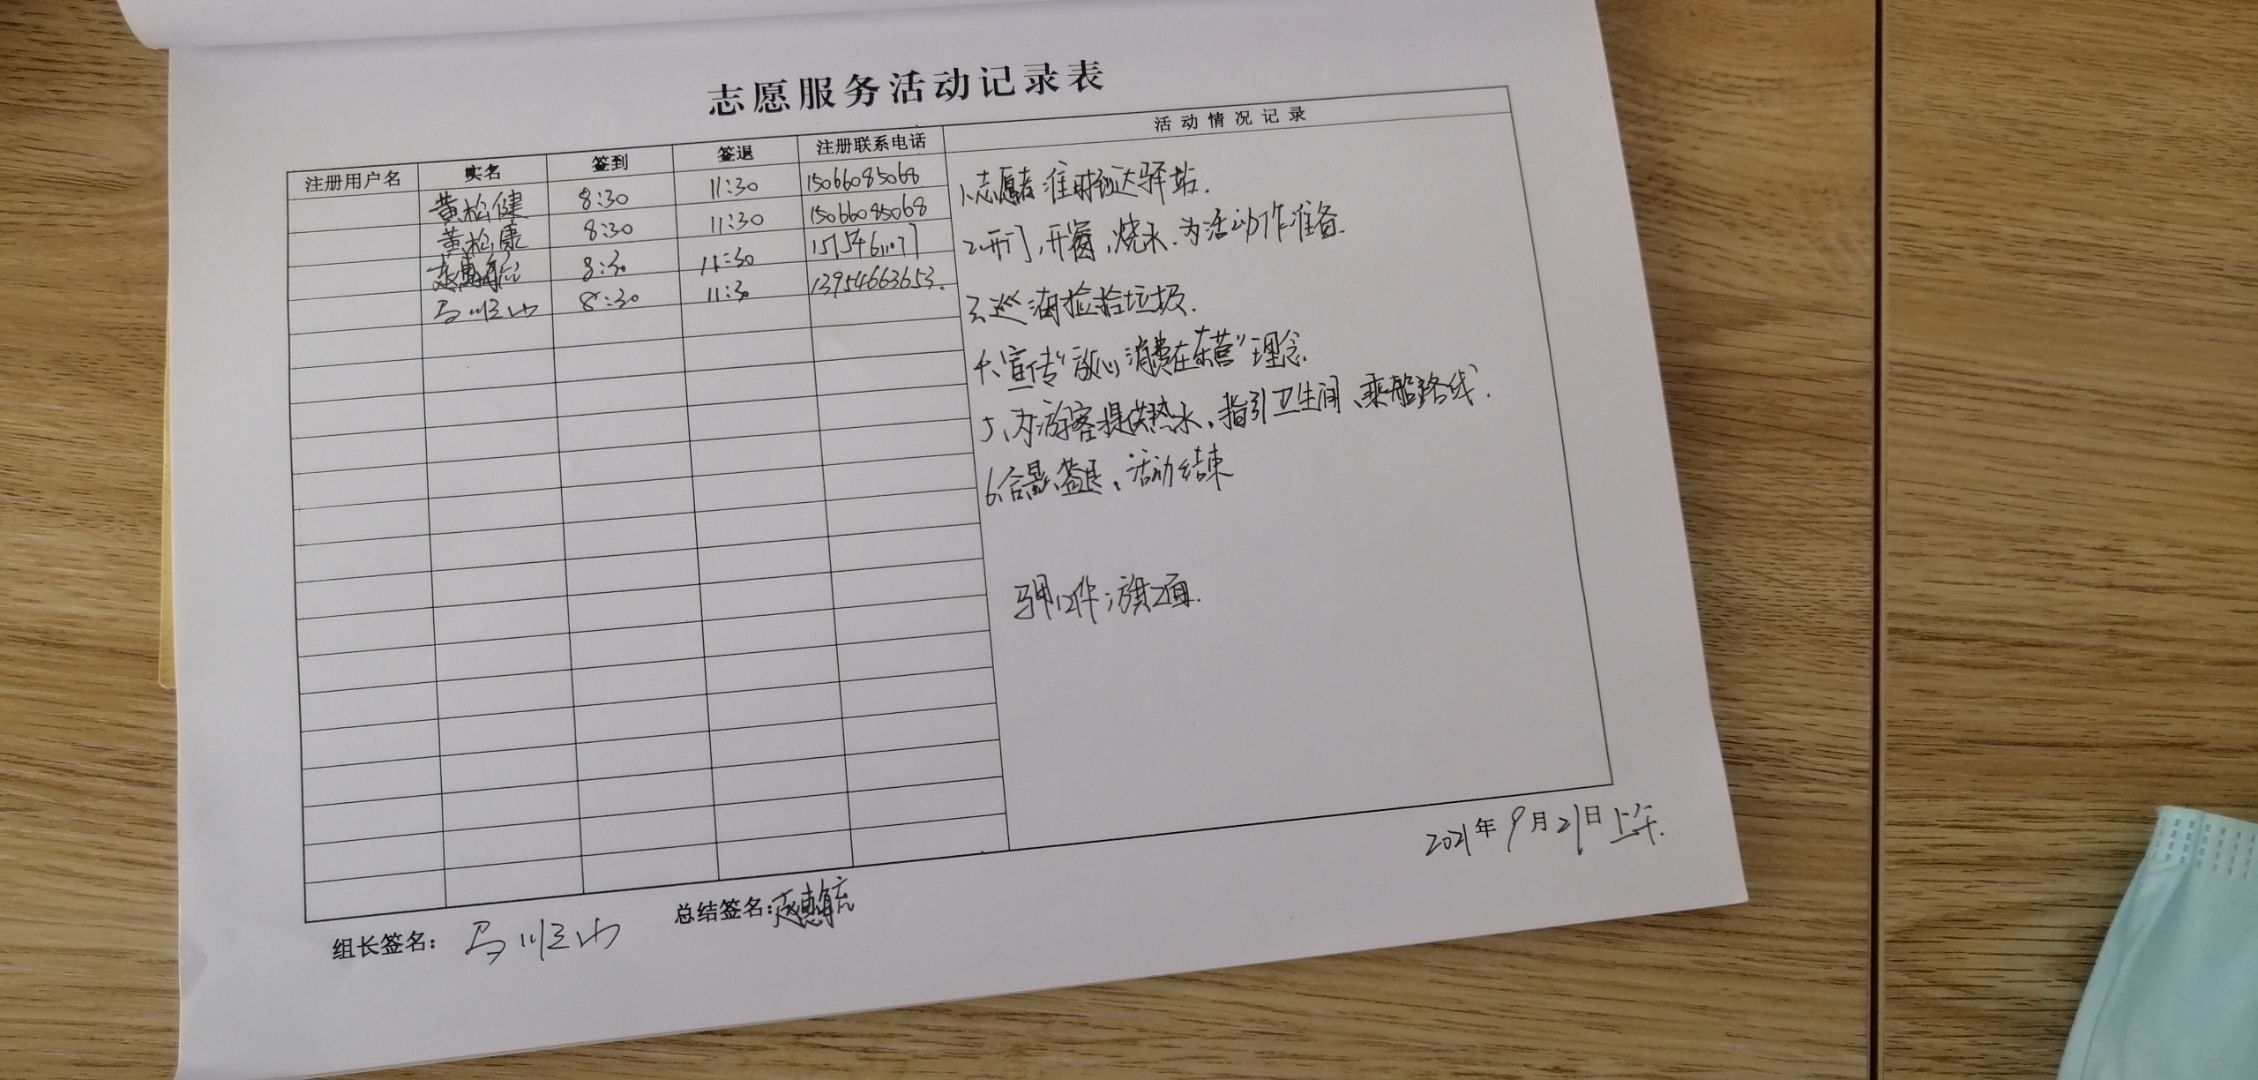 志愿服务活动记录表
注册用户名 实名 签到 签退 注册联系电话 活动情况记录
黄松健 8:30 11:30 15066085068
黄松康 8:30 11:30 15066085068
赵惠航 8:30 11:30
马顺山 8:30 11:30 13954663653.
1.志愿者准时到达驿站.
2.开门,开窗,烧水.为活动作准备.
3.巡海捡拾垃圾.
4、宣传“放心消费在东营”理念.
5、为游客提供热水、指引卫生间、乘船路线.
6、合影、签退、活动结束
马甲12件;旗2面.
2021年9月21日上午.
组长签名: 马顺山 总结签名:赵惠航